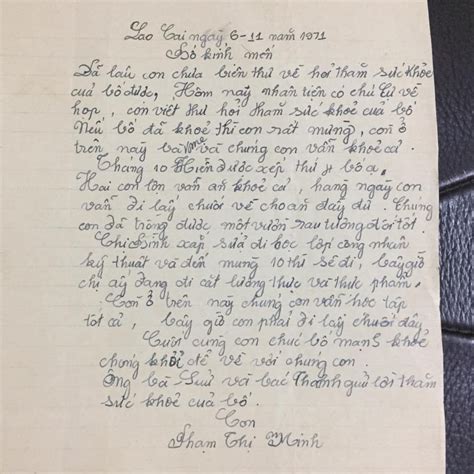 Lao Cai ngày 6-11 năm 1971
Bố kính mến
Đã lâu con chưa biên thư về hỏi thăm sức khỏe
của bố được, Hôm nay nhân tiện có chú Lừ về
họp, con viết thư hỏi thăm sức khoẻ của bố
Nếu bố đã khoẻ thì con rất mừng, còn ở
trên này bà và chúng con vẫn khoẻ cả.
Tháng 10 Hiền được xếp thứ 4 bố ạ.
Hai con lợn vẫn ăn khoẻ cả, hàng ngày con
vẫn đi lấy chuối về cho ăn đầy đủ. Chúng
con đã trồng được một vườn rau tương đối tốt.
Chị Sinh xắp sửa đi học lớp công nhân
kỹ thuật và đến mùng 10 thì sẽ đi, bây giờ
chị ấy đang đi cắt lương thực và thực phẩm.
Còn ở trên này chúng con vẫn học tập
tốt cả, bây giờ con phải đi lấy chuối đây
Cuối cùng con chúc bố mạnh khoẻ
chóng khỏi để về với chúng con.
Ông bà Sửu và bác Thành gửi lời thăm
sức khoẻ của bố.
Con
Phạm Thị Minh